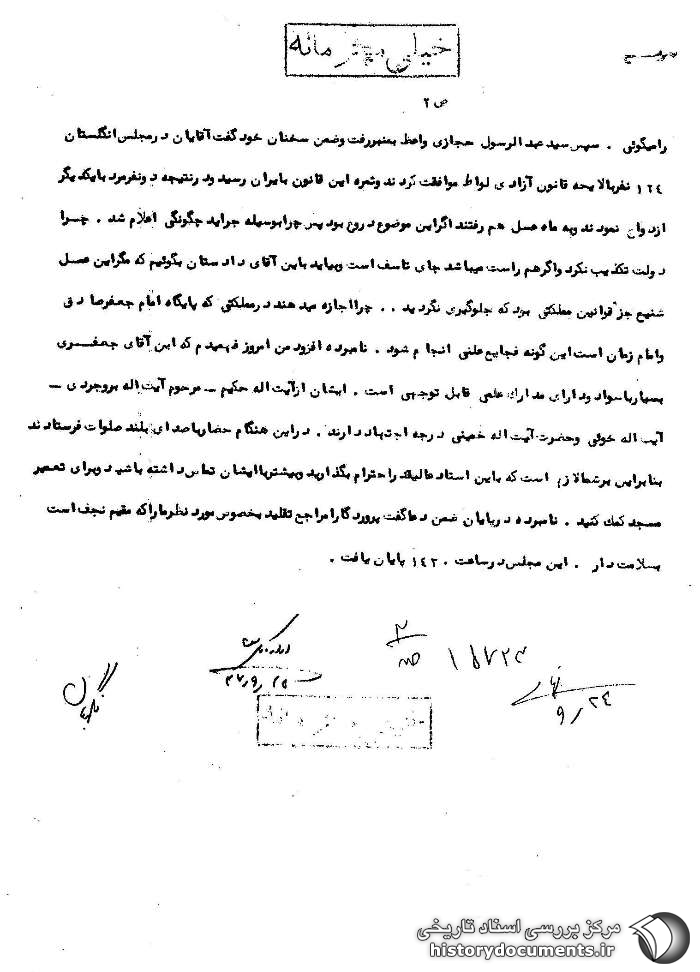 خیلی محرمانه
ص ۲
راهگوئی . سپس سید عبد الرسول حجازی واعظ بمنبر رفت وضمن سخنان خود گفت آقایان د رمجلس انگلستان
۱۲٤ نفر بالایحه قانون آزادی لواط موافقت کرد ند وثمره این قانون بایران رسید ود رنتیجه د ونفرمرد بایکدیگر
ازد واج نمود ند وبه ماه عسل هم رفتند اگراین موضوع د روغ بود پس چرابوسیله جراید چگونگی اعلام شد . چرا
د ولت تکذیب نکرد واگرهم راست میباشد جای تاسف است وبیاید باین آقای داد ستان بگوئیم که مگراین عمل
شنیع جز قوانین مملکتی بود که جلوگیری نگردید . . چرااجازه مید هند د رمملکتی که پایگاه امام جعفرصاد ق
وامام زمان است این گونه فجایع علنی انجا م شود . نامبرده افزود من امروز فهمید م که این آقای جعفــری
بسیارباسواد ود ارای مد ارك علمی قابل توجهی است . ایشان ازآیت اله حکیم ـ مرحوم آیت اله بروجرد ی ـ
آیت اله خوئی وحضرت آیت اله خمینی د رجه اجتهاد د ارند . د راین هنگام حضارباصد ای بلند صلوات فرستاد ند
بنابراین برشمالاز م است که باین استاد عالیقد راحترام بگذارید وبیشترباایشان تماس د اشته باشید وبرای تعمیر
مسجد کمك کنید . نامبرده د رپایان ضمن د عاگفت پرورد گارامراجع تقلید بخصوص مورد نظرماراکه مقیم نجف است
بسلامت د ار . این مجلس د رساعت ۱٤۳۰ پایان یافت .
۲
۱۵۷۲۳
۹٫۲٤
مرکز بررسی اسناد تاریخی
historydocuments.ir